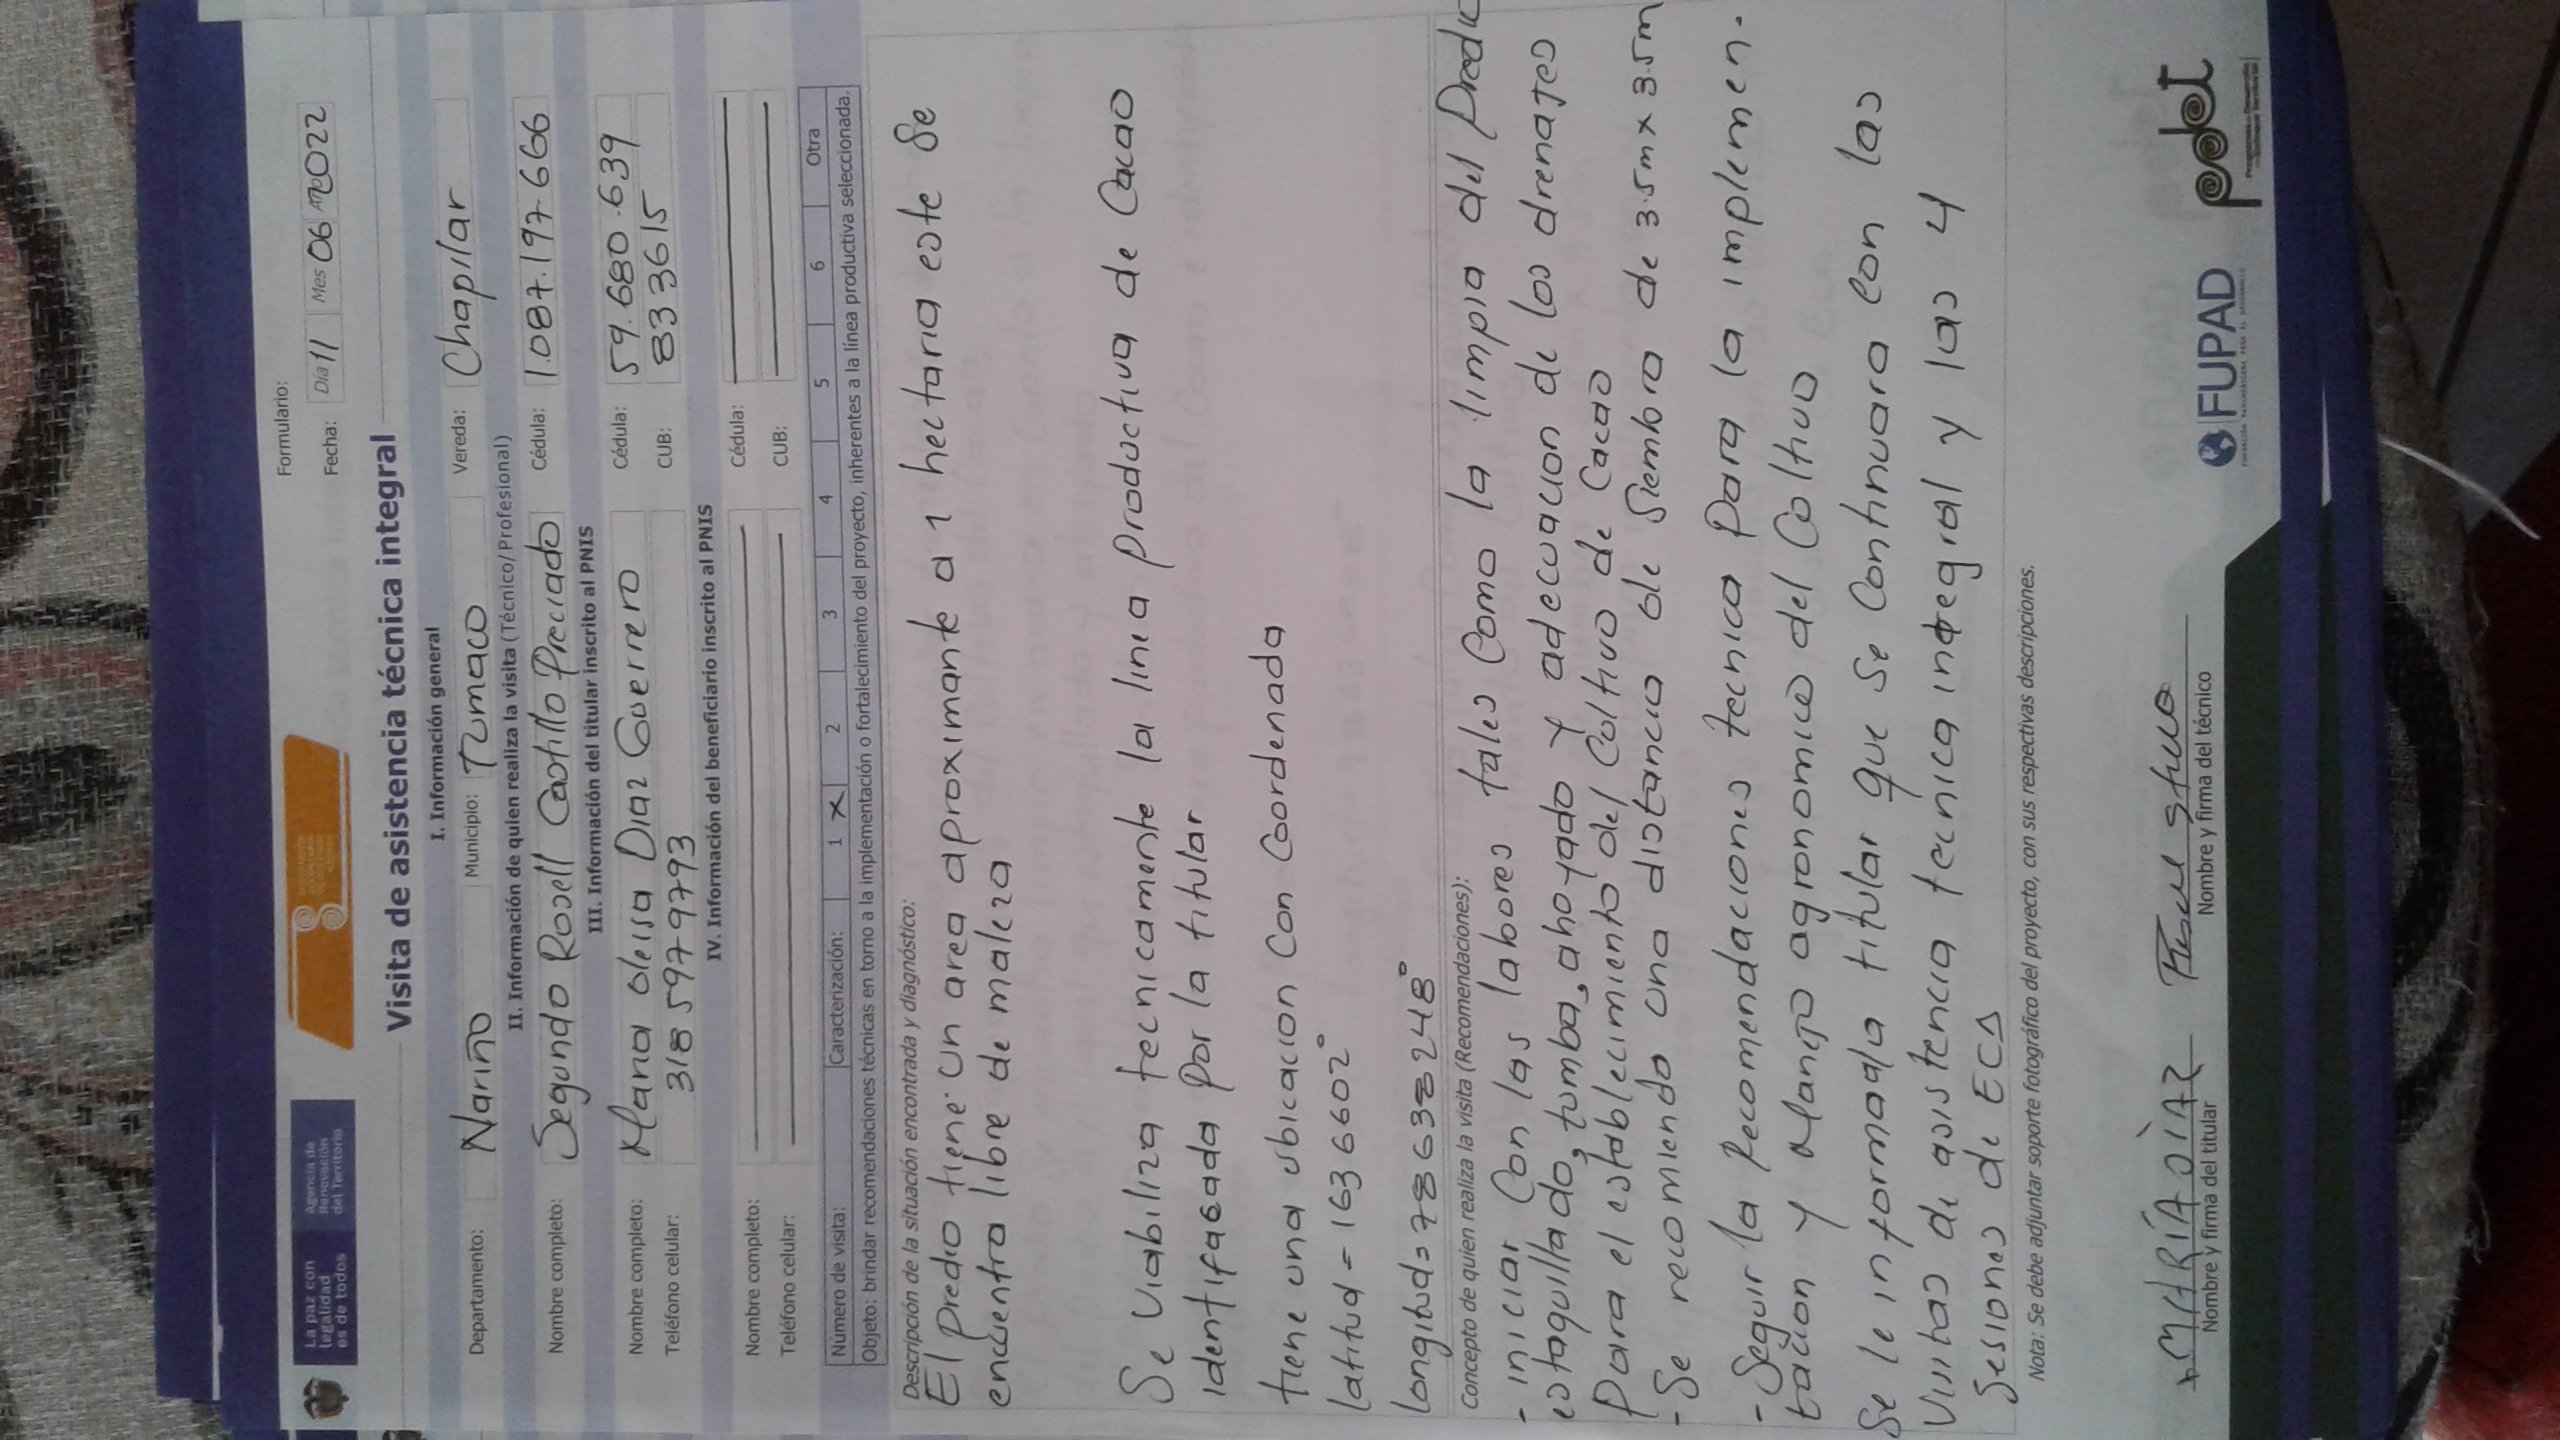 La paz con
legalidad
es de todos
Agencia de
Renovación
del Territorio
Formulario:
Fecha: Día 11 Mes 06 Año 2022
Visita de asistencia técnica integral
I. Información general
Departamento: Nariño Municipio: Tumaco Vereda: Chapilar
II. Información de quien realiza la visita (Técnico/Profesional)
Nombre completo: Segundo Rosell Castillo Preciado Cédula: 1.087.197.666
III. Información del titular inscrito al PNIS
Nombre completo: Maria oleisa Diaz Guerrero Cédula: 59.680.639
Teléfono celular: 3185979793 CUB: 833615
IV. Información del beneficiario inscrito al PNIS
Nombre completo: Cédula:
Teléfono celular: CUB:
Número de visita: Caracterización: 1 X 2 3 4 5 6 Otra
Objeto: brindar recomendaciones técnicas en torno a la implementación o fortalecimiento del proyecto, inherentes a la línea productiva seleccionada.
Descripción de la situación encontrada y diagnóstico:
El predio tiene un area aproximante a 1 hectaria este se
encuentra libre de maleza
Se viabiliza tecnicamente la linea productiva de Cacao
identifasada por la titular
tiene una ubicacion con coordenada
latitud = 1636602°
longitud = 78638248°
Concepto de quien realiza la visita (Recomendaciones):
- iniciar con las labores tales como la limpia del predio
estaquillado, tumba, ahoyado y adecuacion de los drenajes
para el establecimiento del coltivo de Cacao
- Se recomiendo una distancia de siembra de 3.5m x 3.5m
- Seguir la recomendaciones tecnica para la implemen-
tacion y manejo agronomico del coltivo
Se le informada titular que se continuara con las
visitas de asistencia tecnica integral y las 4
sesiones de ECA
Nota: Se debe adjuntar soporte fotográfico del proyecto, con sus respectivas descripciones.
MARÍA DÍAZ
Nombre y firma del titular
Nombre y firma del técnico
FUPAD
FUNDACIÓN PANAMERICANA PARA EL DESARROLLO
pdet
Programas de Desarrollo
con Enfoque Territorial